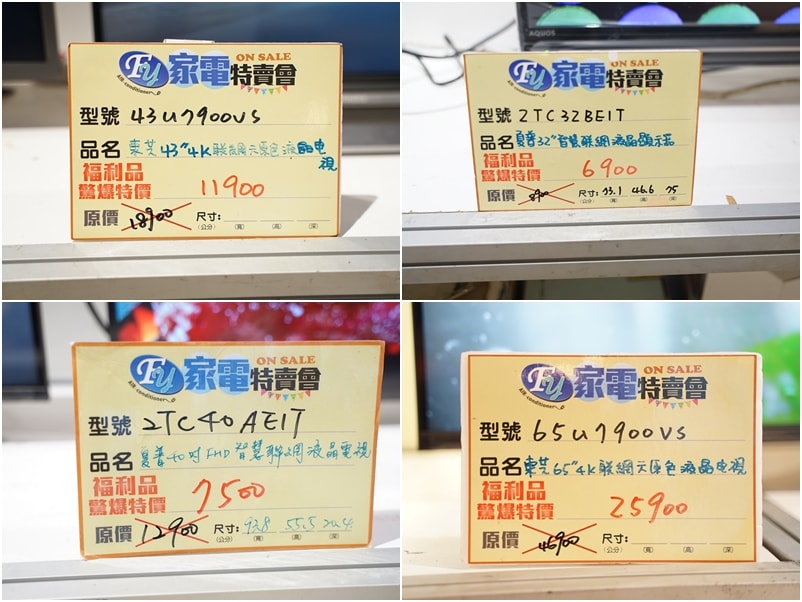 FU 家電特賣會 ON SALE
Air conditioner
型號 43U7900VS
品名 東芝43"4K聯網示原色液晶电視
福利品
驚爆特價 11900
原價 18900 尺寸:
(公分) (寬) (高) (深)
AQUOS
FU 家電特賣會 ON SALE
Air conditioner
型號 2TC32BE1T
品名 夏普32"智慧聯網液晶顯示器
福利品
驚爆特價 6900
原價 8900 尺寸: 73.1 46.6 75
(公分) (寬) (高) (深)
FU 家電特賣會 ON SALE
Air conditioner
型號 2TC40AE1T
品名 夏普40吋FHD智慧聯網液晶電視
福利品
驚爆特價 7500
原價 12900 尺寸: 93.8 55.5 20.4
(公分) (寬) (高) (深)
FU 家電特賣會 ON SALE
Air conditioner
型號 65U7900VS
品名 東芝65"4K聯網示原色液晶电視
福利品
驚爆特價 25900
原價 46900 尺寸:
(公分) (寬) (高) (深)